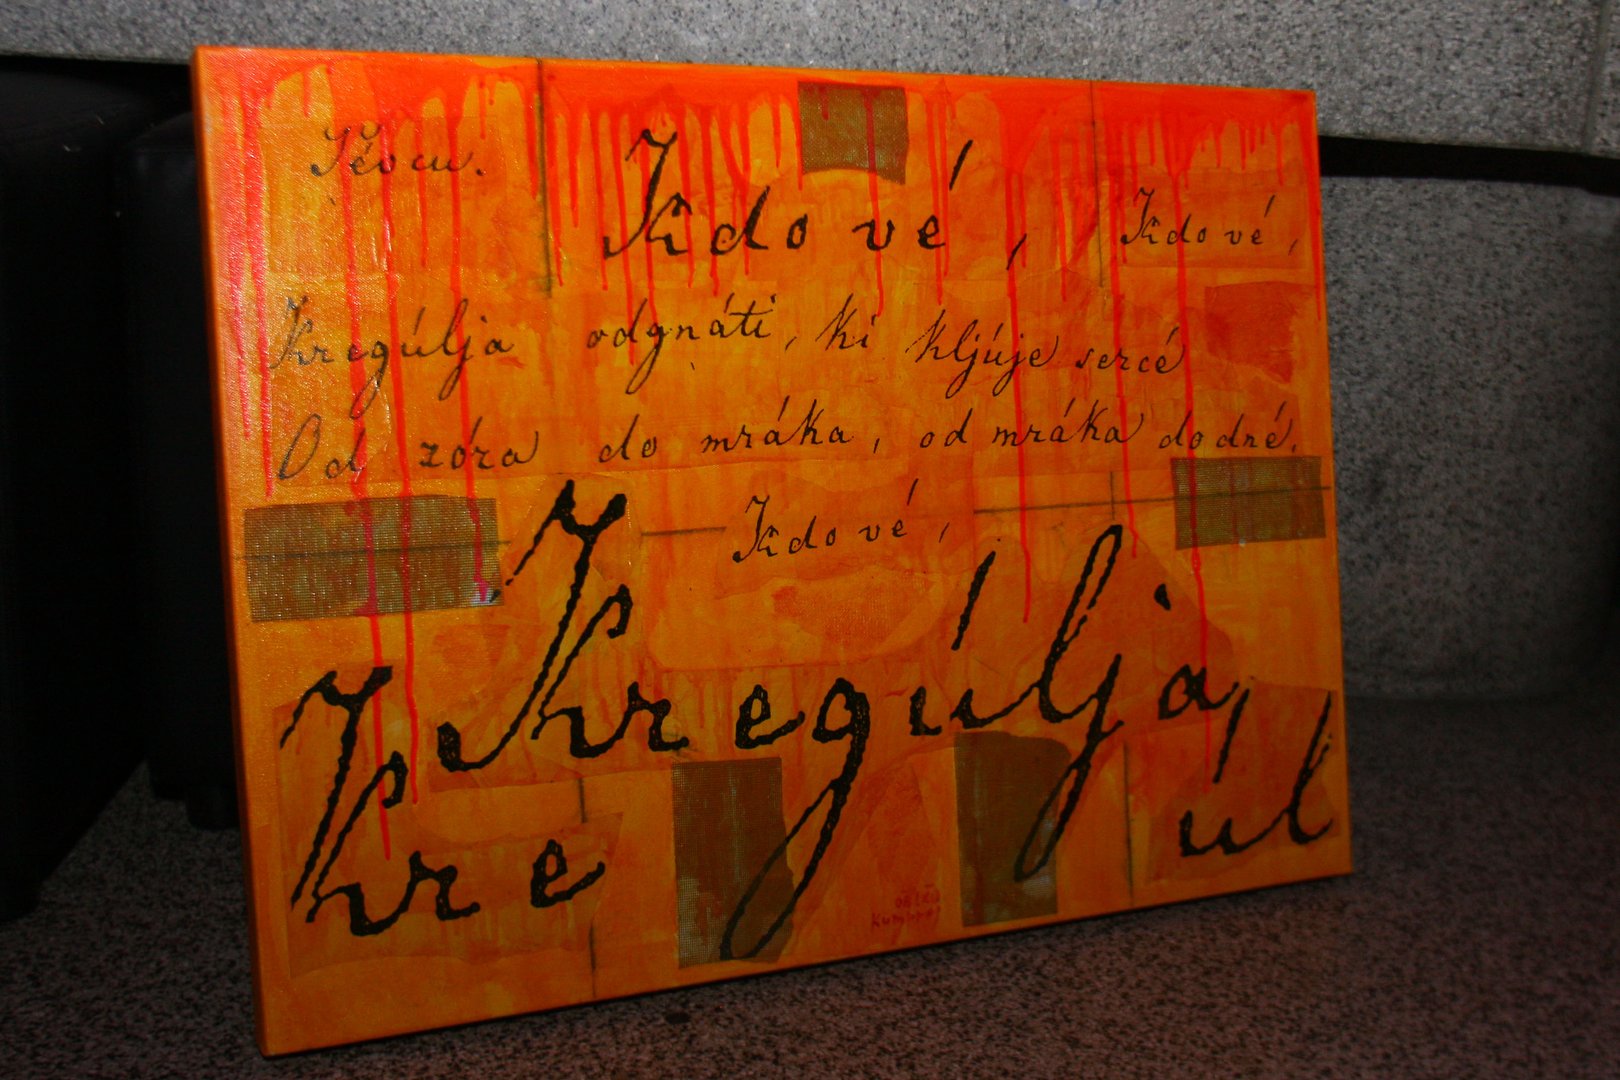 Pévcu.
Kdo vé,
Kdo vé,
Kregúlja odgnáti, ki kljúje sercé
Od zóra do mráka, od mráka do dné.
Kdo vé,
Kregúlja
Kre
úl